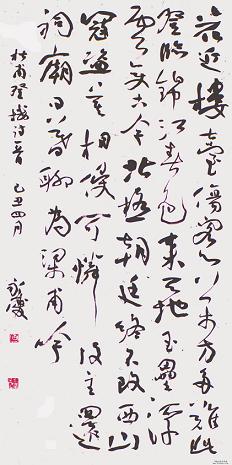 花近樓臺傷客心万方多難此
登臨錦江春色來天地玉壘浮
雲變古今北極朝廷終不改西山
寇盜莫相侵可憐後主還
祠廟日暮聊為梁甫吟
杜甫登樓詩一首 己丑四月